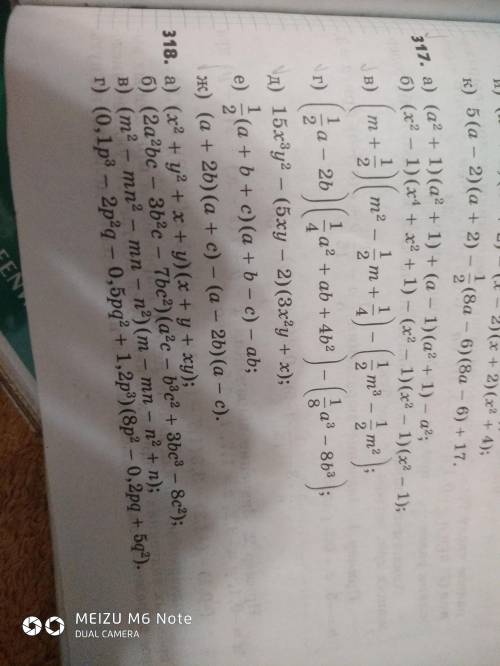 2)(x + 2)(x² + 4);
к) 5(a − 2)(a + 2) − 1/2(8a − 6)(8a − 6) + 17.
317. а) (a² + 1)(a² + 1) + (a − 1)(a² + 1) − a²;
б) (x² − 1)(x⁴ + x² + 1) − (x² − 1)(x² − 1);
в) (m + 1/2)(m² − 1/2m + 1/4) − (1/2m³ − 1/2m²);
г) (1/2a − 2b)(1/4a² + ab + 4b²) − (1/8a³ − 8b³);
д) 15x³y² − (5xy − 2)(3x²y + x);
е) 1/2(a + b + c)(a + b − c) − ab;
ж) (a + 2b)(a + c) − (a − 2b)(a − c).
318. а) (x² + y² + x + y)(x + y + xy);
б) (2a²bc − 3b²c − 7bc²)(a²c − b³c² + 3bc³ − 8c²);
в) (m² − mn² − mn − n²)(m − mn − n² + n);
г) (0,1p³ − 2p²q − 0,5pq² + 1,2p³)(8p² − 0,2pq + 5q²).
MEIZU M6 Note
DUAL CAMERA